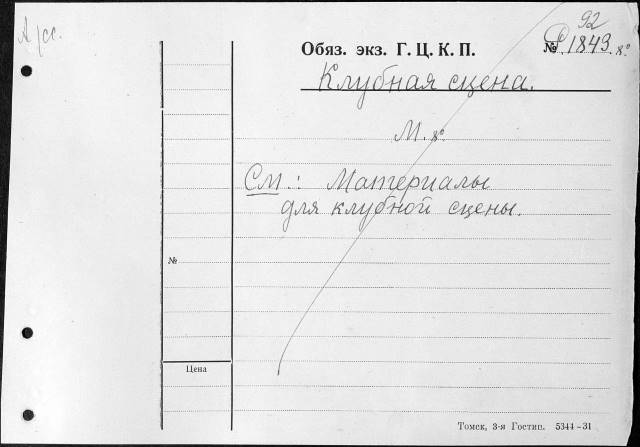 А/сс.
92
Обяз. экз. Г. Ц. К. П. № P 1843. 8°
Клубная сцена.
М. 8°
См.: Материалы
для клубной сцены.
№
Цена
Томск, 3-я Гостип. 5344-31